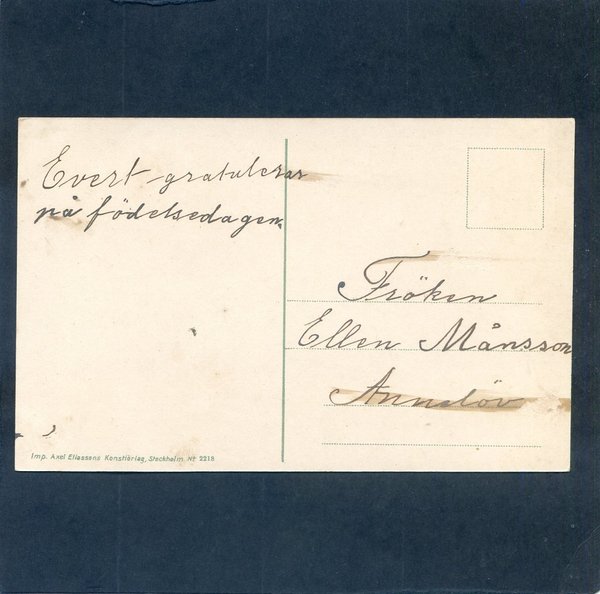 Evert gratulerar
på födelsedagen.
Fröken
Ellen Månsson
Annelöv
Imp. Axel Eliassons Konstförlag, Stockholm. Nr 2218